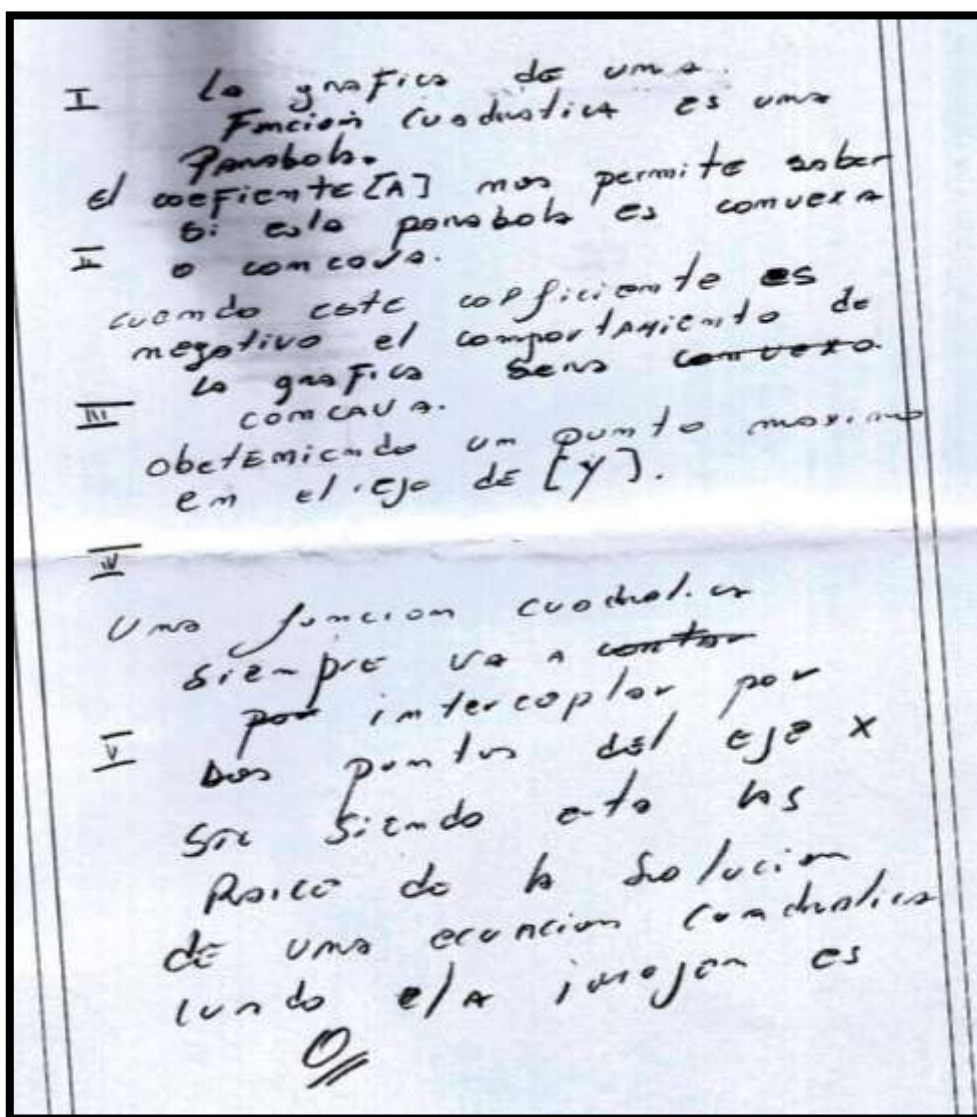 I La grafica de una
Funcion Cuadratica es una
Parabola.
el coefiente [A] nos permite saber
si esta parabola es convexa
II o concava.
cuando este coeficiente es
negativo el comportamiento de
la grafica sera convexa
III concava.
obeteniendo un punto maximo
en el eje de [y].
IV
Una funcion cuadratica
siempre va a contar
por interceptar por
V Dos puntos del eje x
Sie siendo esta las
Raice de la solucion
de una ecuacion Cuadratica
cuando el A imajen es
0